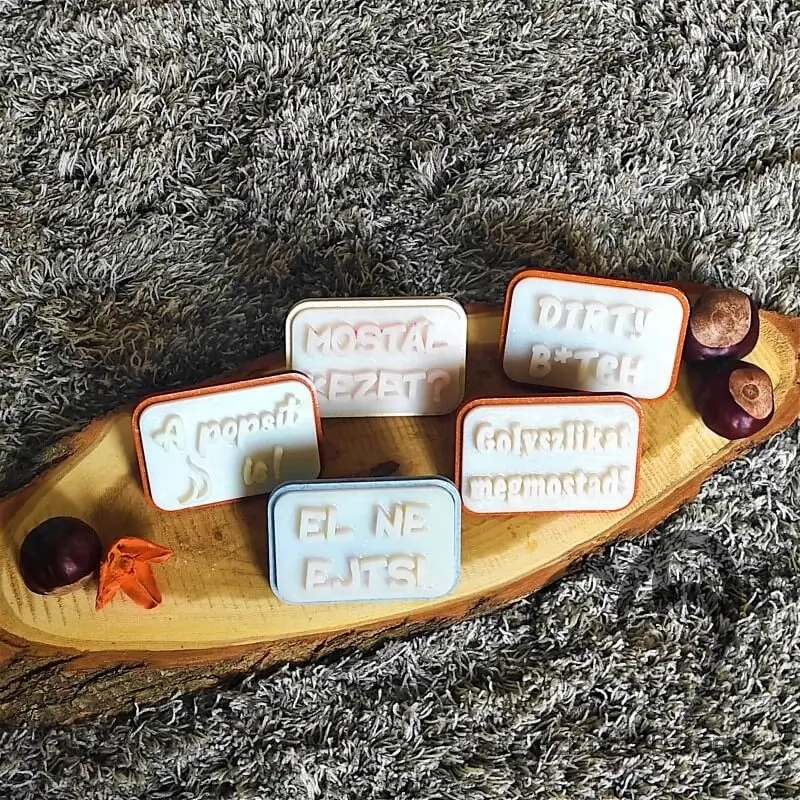 MOSTÁL
KEZET?
DIRTY
B*TCH
A popsit
is!
Golyszlikat
megmostad?
EL NE
EJTS!